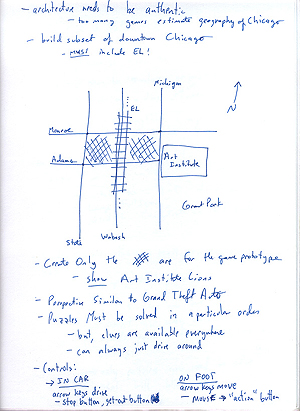 - architecture needs to be authentic
- too many games estimate geography of Chicago
- build subset of downtown Chicago
- MUST include EL!
Michigan
EL
N
Monroe
Adams
Art Institute
Grant Park
State
Wabash
- Create Only the are for the game prototype
- show Art Institute Lions
- Perspective Similar to Grand Theft Auto
- Puzzles Must be solved in a particular order
- but, clues are available everywhere
- can always just drive around
- Controls:
→ IN CAR
arrow keys drive
- stop button, get-out button
ON FOOT
arrow keys move
- mouse → "action" button